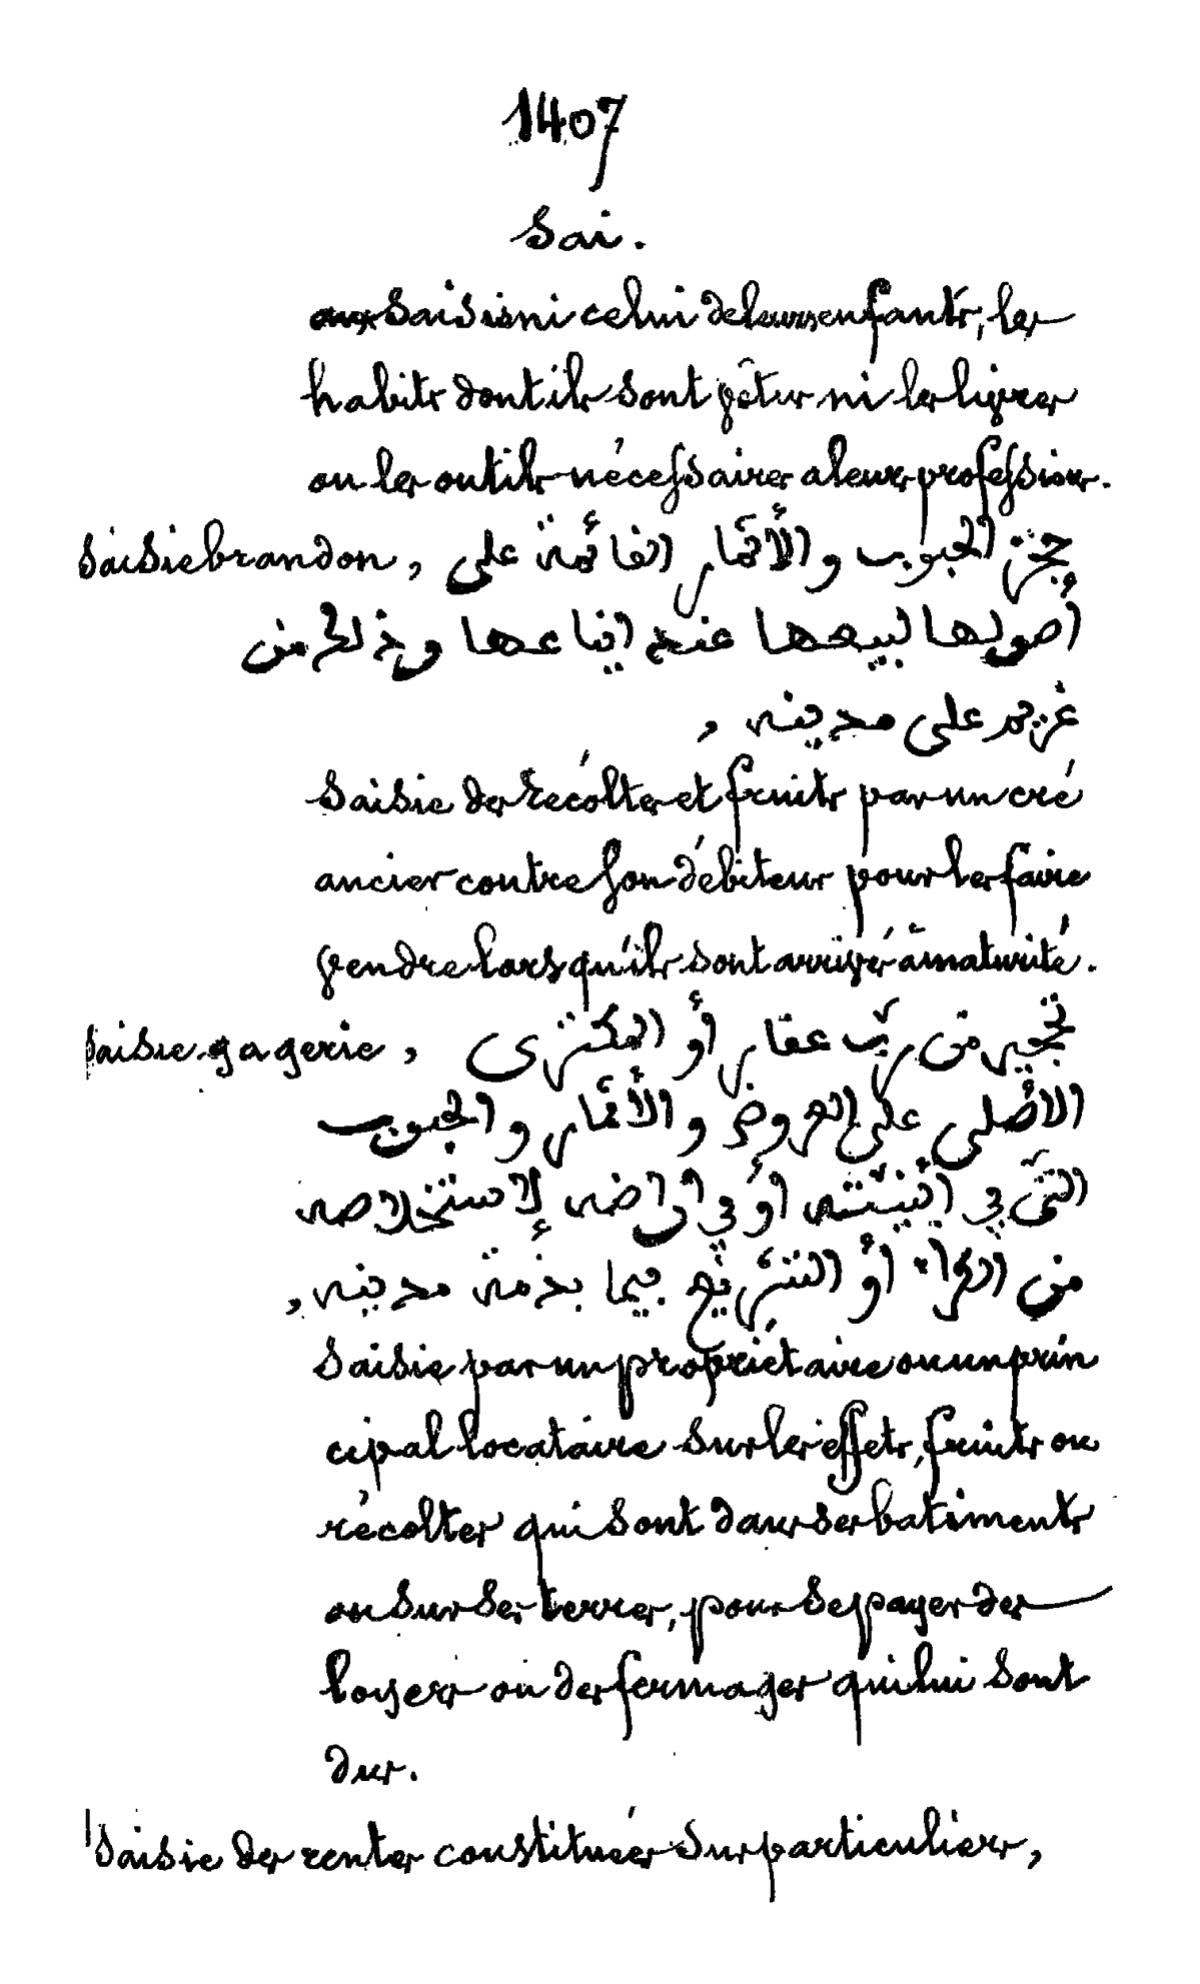 1407
Sai.
aux saisis ni celui de leurs enfants, les
habits dont ils sont vêtus ni les livres
ou les outils nécessaires a leurs profession.
Saisie brandon, حجز الحبوب والأثمار القائمة على
أصولها لبيعها عند ايناعها وذلك من
غريم على مدينه ,
Saisie des récoltes et fruits par un cré
ancier contre son débiteur pour les faire
vendre lorsqu'ils sont arrivés à maturité.
Saisie-gagerie, تحجير من ربّ عقار أو المكتري
الاصلي على العروض والأثمار والحبوب
التي في ابنيته أو في اراضه لإستخلاصه
من الكراء أو التنزيع فيما بذمة مدينه ,
Saisie par un propriétaire ou un prin
cipal locataire sur les effets, fruits ou
récoltes qui sont dans ses batiments
ou sur ses terres, pour se payer des
loyers ou des fermages qui lui sont
dus.
Saisie des rentes constituées sur particuliers,